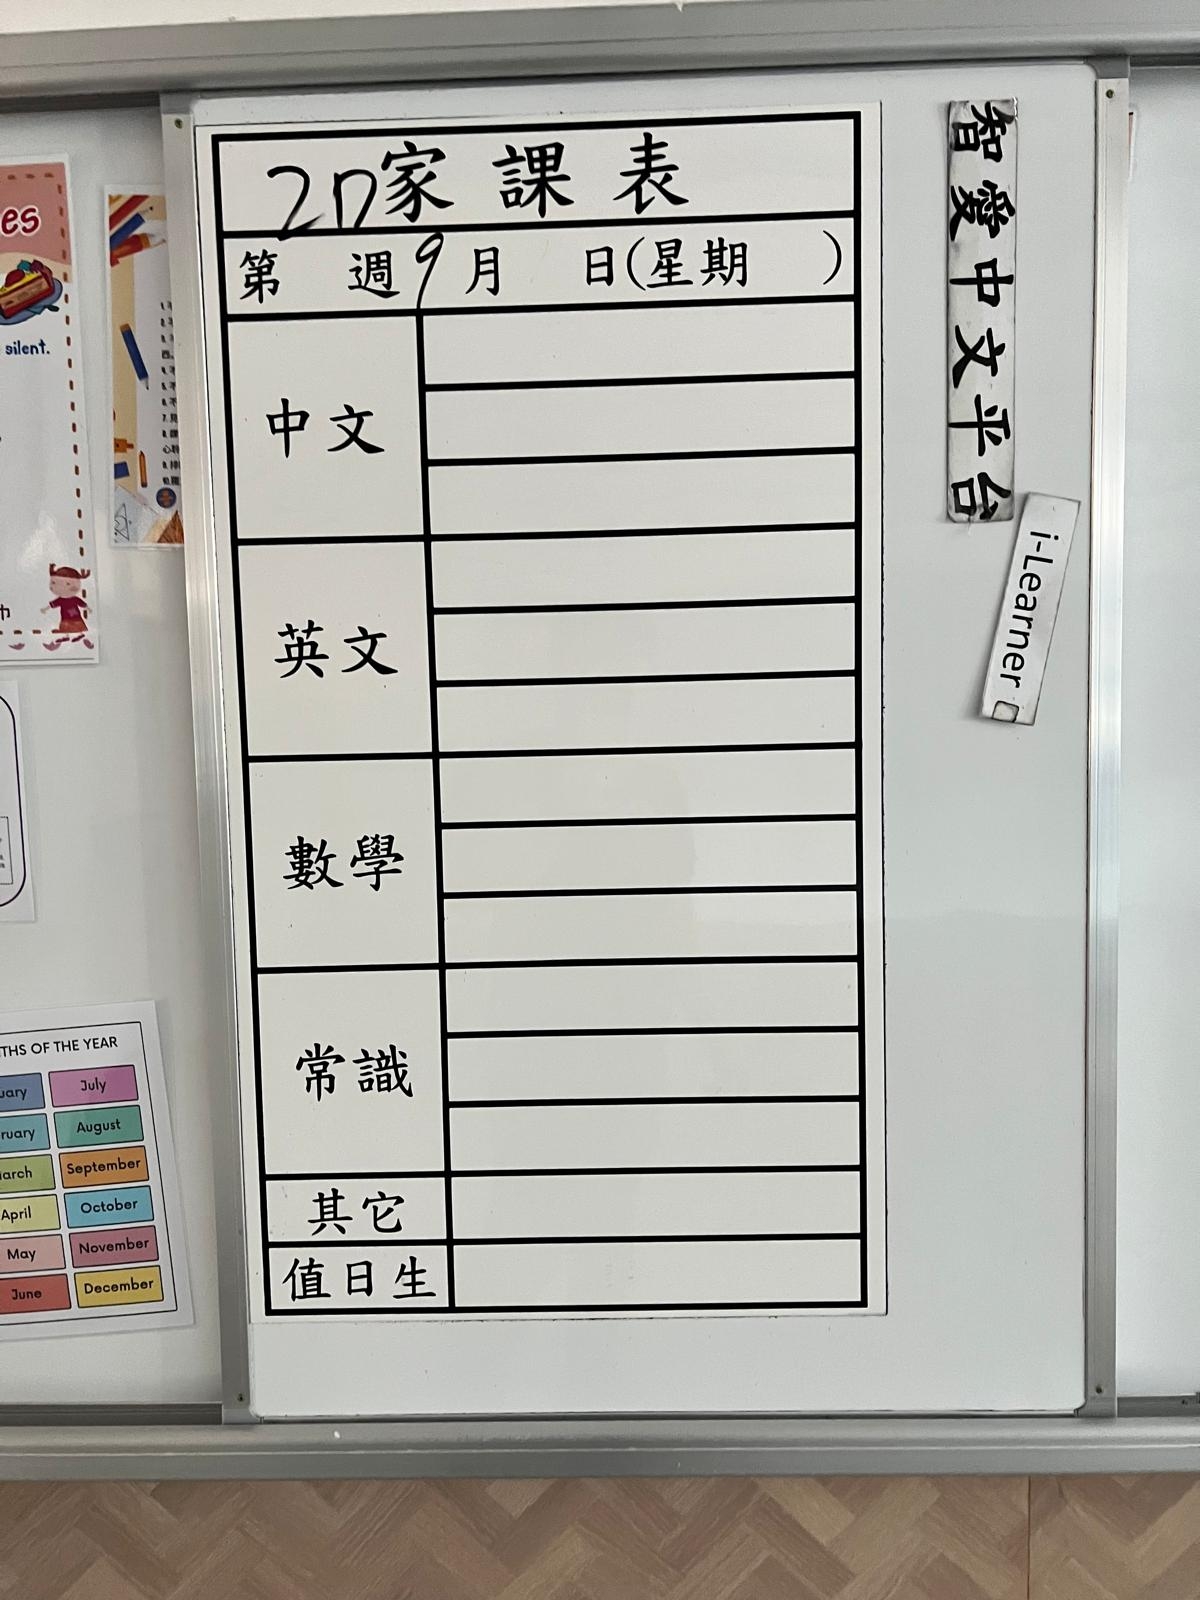 2D家課表
第 週9月 日(星期 )
中文
英文
數學
常識
其它
值日生
智愛中文平台
i-Learner
silent.
THS OF THE YEAR
July
August
March
September
April
October
May
November
June
December